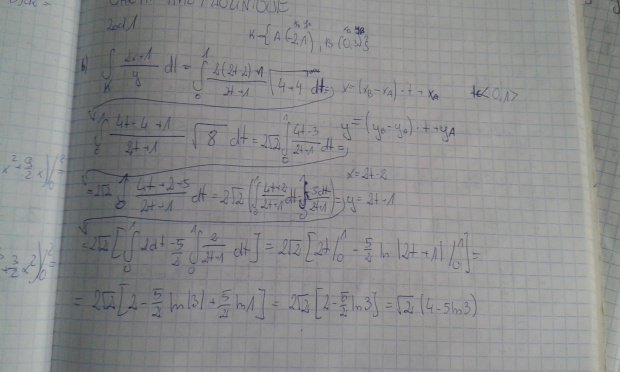 zad 1
K-{A(-2,1), B(0,3)}
b) ∫_K (2x+1)/y dl = ∫_0^1 (2(2t-2)+1)/(2t+1) √(4+4) dt = x=(x_B-x_A)·t+x_A t∈<0,1>
∫ (4t-4+1)/(2t+1) √8 dt = 2√2 ∫_0^1 (4t-3)/(2t+1) dt = y=(y_B-y_A)·t+y_A
x=2t-2
=2√2 ∫_0^1 (4t+2-5)/(2t+1) dt = 2√2 (∫_0^1 (4t+2)/(2t+1) dt - ∫_0^1 5dt/(2t+1)) = y=2t-1
=2√2 [∫_0^1 2dt - 5/2 ∫_0^1 2/(2t+1) dt] = 2√2 [2t|_0^1 - 5/2 ln|2t+1| |_0^1] =
= 2√2 [2 - 5/2 ln|3| + 5/2 ln1] = 2√2 [2 - 5/2 ln3] = √2 (4-5ln3)